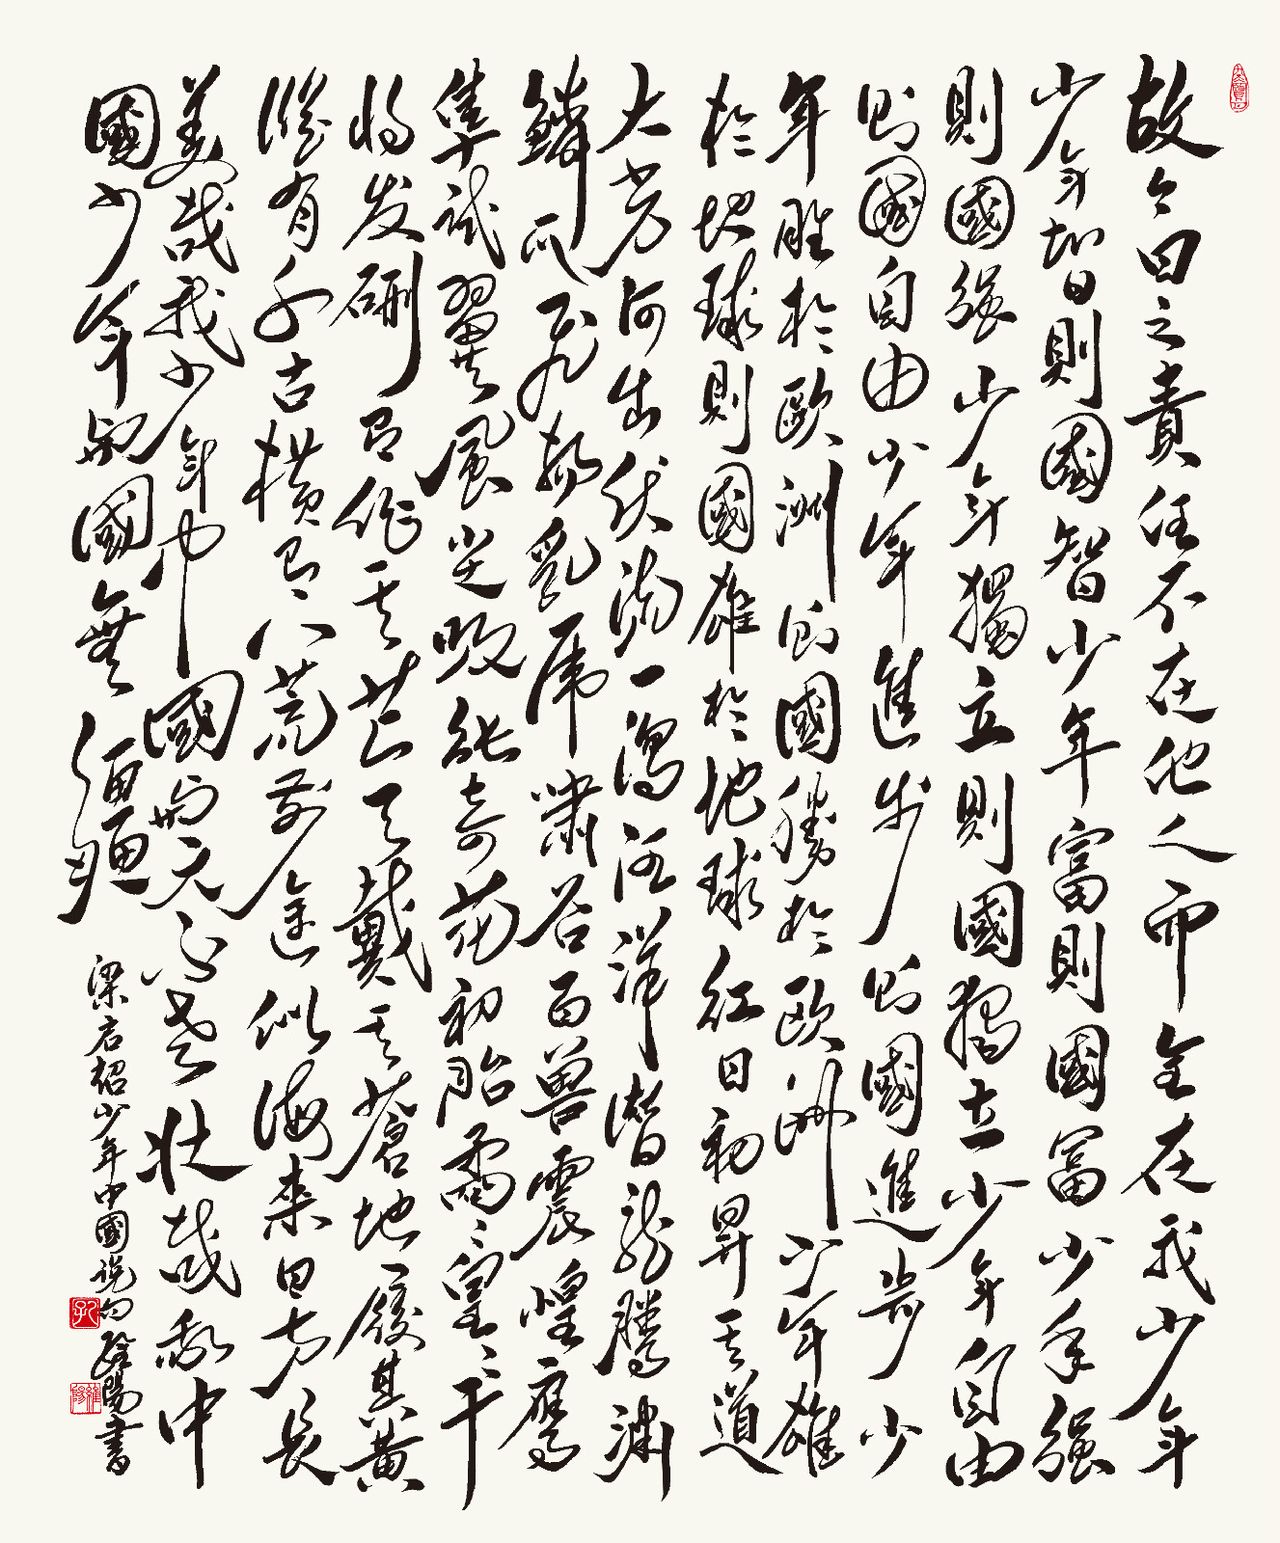 故今日之責任不在他人而全在我少年
少年智則國智少年富則國富少年强
則國强少年獨立則國獨立少年自由
則國自由少年進步則國進步少
年胜於歐洲則國勝於歐洲少年雄
於地球則國雄於地球紅日初昇其道
大光河出伏流一瀉汪洋潛龍騰淵
鱗爪飛揚乳虎嘯谷百獸震惶鷹
隼試翼風尘吸張奇花初胎矞〻皇〻干
將发硎有作其芒天戴其蒼地履其黃
縱有千古橫有八荒前途似海来日方長
美哉我少年中國與天不老壯哉我中
國少年與國無疆
梁启超少年中國说句 陽書
孔